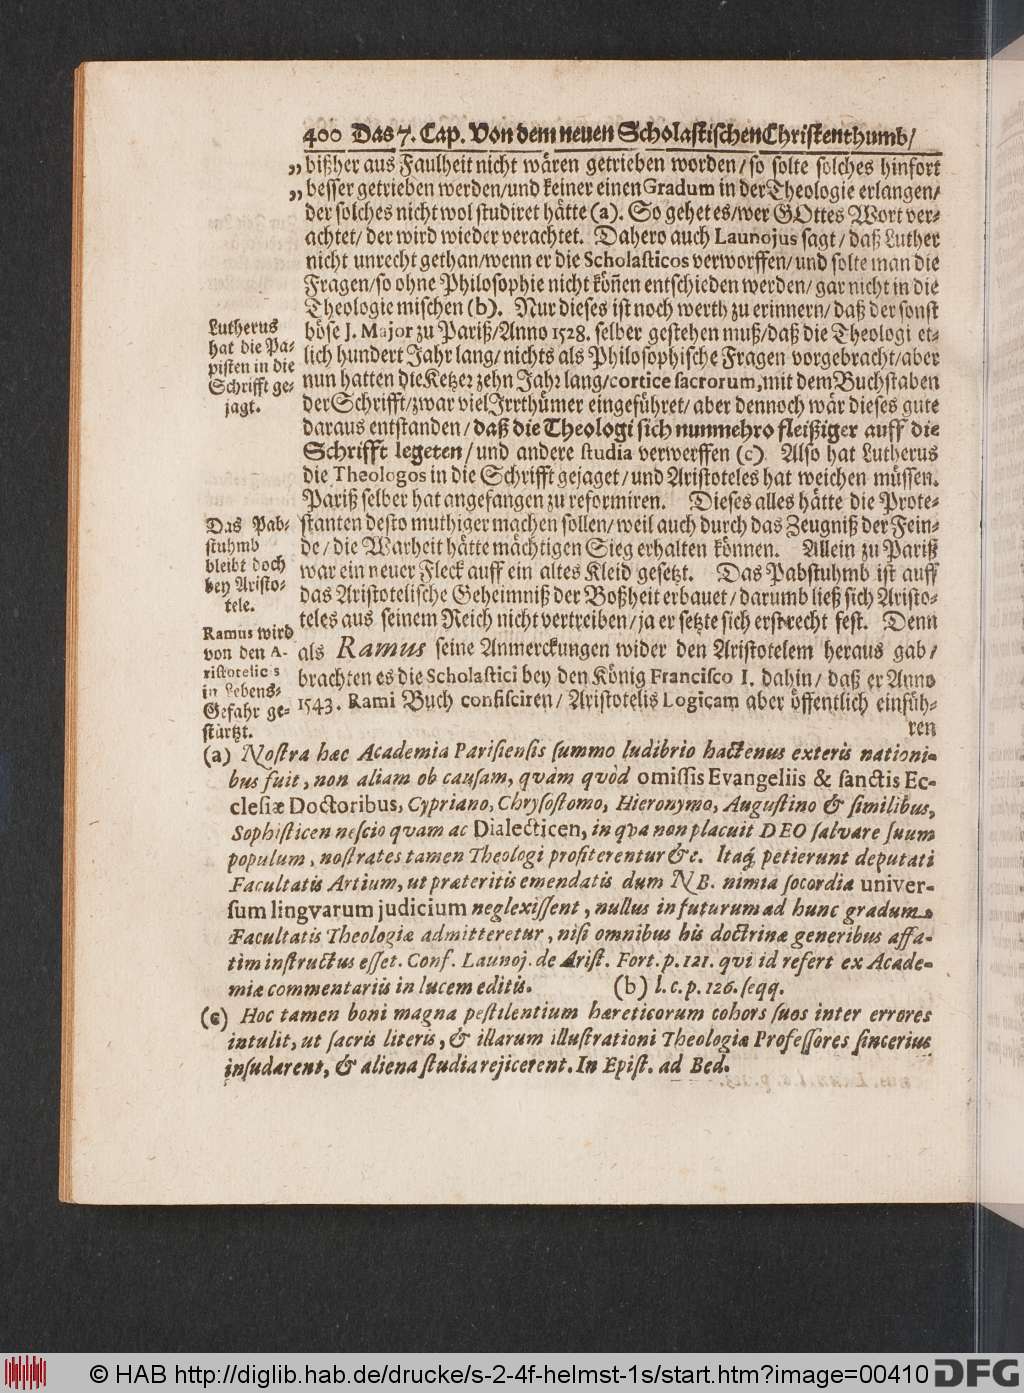 400 Das 7. Cap. Von dem neuen Scholastischen Christenthumb/
„ bißher aus Faulheit nicht wären getrieben worden/ so solte solches hinfort
„ besser getrieben werden/ und keiner einen Gradum in der Theologie erlangen/
der solches nicht wol studiret hätte (a). So gehet es/ wer GOttes Wort ver-
achtet/ der wird wieder verachtet. Dahero auch Launojus sagt/ daß Luther
nicht unrecht gethan/ wenn er die Scholasticos verworffen/ und solte man die
Fragen/ so ohne Philosophie nicht köñen entschieden werden/ gar nicht in die
Theologie mischen (b). Nur dieses ist noch werth zu erinnern/ daß der sonst
böse J. Major zu Pariß/ Anno 1528. selber gestehen muß/ daß die Theologi et-
lich hundert Jahr lang/ nichts als Philosophische Fragen vorgebracht/ aber
nun hatten die Ketzer zehn Jahr lang/ cortice sacrorum, mit dem Buchstaben
der Schrifft/ zwar viel Irrthümer eingeführet/ aber dennoch wär dieses gute
daraus entstanden/ daß die Theologi sich nunmehro fleißiger auff die
Schrifft legeten/ und andere studia verwerffen (c) Also hat Lutherus
die Theologos in die Schrifft gejaget/ und Aristoteles hat weichen müssen.
Pariß selber hat angefangen zu reformiren. Dieses alles hätte die Prote-
stanten desto muthiger machen sollen/ weil auch durch das Zeugniß der Fein-
de/ die Warheit hätte mächtigen Sieg erhalten können. Allein zu Pariß
war ein neuer Fleck auff ein altes Kleid gesetzt. Das Pabstuhmb ist auff
das Aristotelische Geheimniß der Boßheit erbauet/ darumb ließ sich Aristo-
teles aus seinem Reich nicht vertreiben/ ja er setzte sich erst recht fest. Denn
als Ramus seine Anmerckungen wider den Aristotelem heraus gab/
brachten es die Scholastici bey den König Francisco I. dahin/ daß er Anno
1543. Rami Buch confisciren/ Aristotelis Logicam aber öffentlich einfüh-
ren
Lutherus
hat die Pa-
pisten in die
Schrifft ge-
jagt.
Das Pab-
stuhmb
bleibt doch
bey Aristo-
tele.
Ramus wird
von den A-
ristotelicis
in Lebens-
Gefahr ge-
stürtzt.
(a) Nostra hæc Academia Parisiensis summo ludibrio hactenus exteris nationi-
bus fuit, non aliam ob causam, qvàm qvòd omissis Evangeliis & sanctis Ec-
clesiæ Doctoribus, Cypriano, Chrysostomo, Hieronymo, Augustino & similibus,
Sophisticen nescio qvam ac Dialecticen, in qva non placuit DEO salvare suum
populum, nostrates tamen Theologi profiterentur &c. Itaq; petierunt deputati
Facultatis Artium, ut præteritis emendatis dum NB. nimia socordia univer-
sum lingvarum judicium neglexissent, nullus in futurum ad hunc gradum
Facultatis Theologiæ admitteretur, nisi omnibus his doctrinæ generibus affa-
tim instructus esset. Conf. Launoj. de Arist. Fort. p. 121. qvi id refert ex Acade-
miæ commentariis in lucem editis. (b) l. c. p. 126. seqq.
(c) Hoc tamen boni magna pestilentium hæreticorum cohors suos inter errores
intulit, ut sacris literis, & illarum illustrationi Theologiæ Professores sincerius
insudarent, & aliena studia rejicerent. In Epist. ad Bed.
© HAB http://diglib.hab.de/drucke/s-2-4f-helmst-1s/start.htm?image=00410
DFG